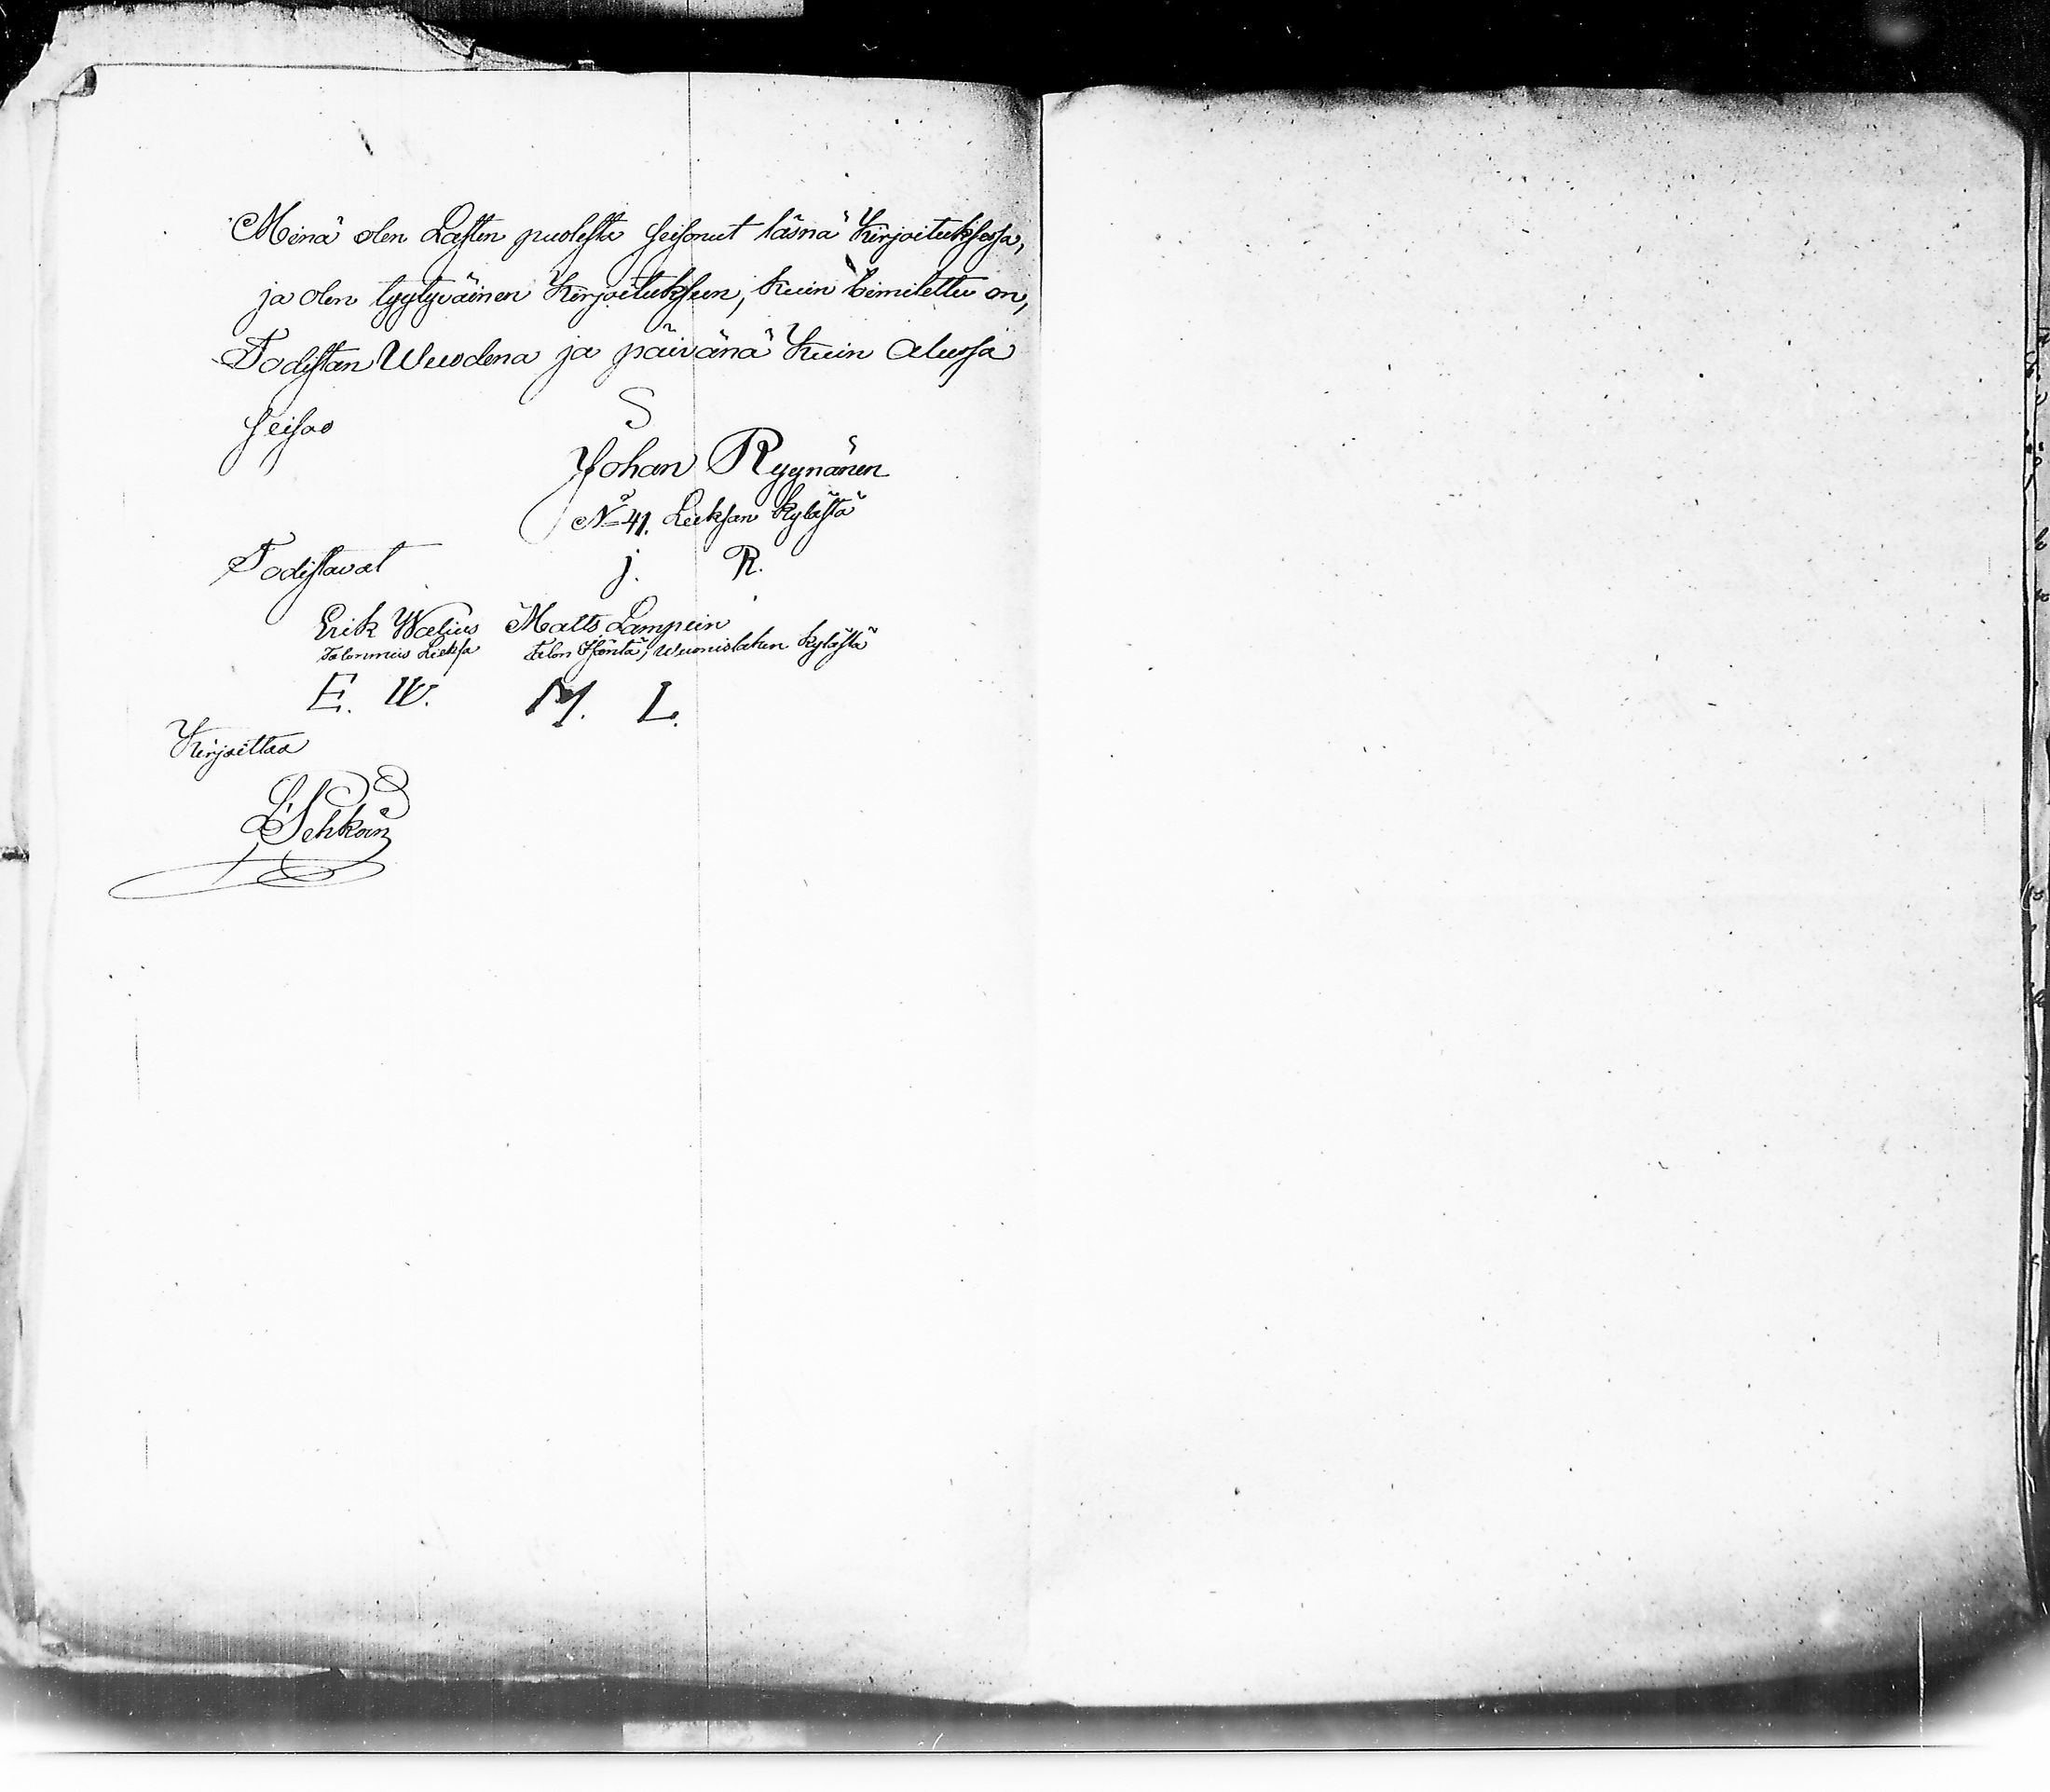 Minä olen Lasten puolesta seisonut läsnä Kirjoituksessa,
ja olen tyytyväinen Kirjoitukseen, kuin toimitettu on,
Todistan Wuodena ja päivänä Kuin Alussa
seisoo
Johan Ryynänen
No 41. Lieksan kylästä
Todistavat
J. R.
Erik Walius Matts Lampein
Talonmies Lieksa Talon Isäntä, Wuonislahen kylästä
E. W. M. L.
Kirjoittaa